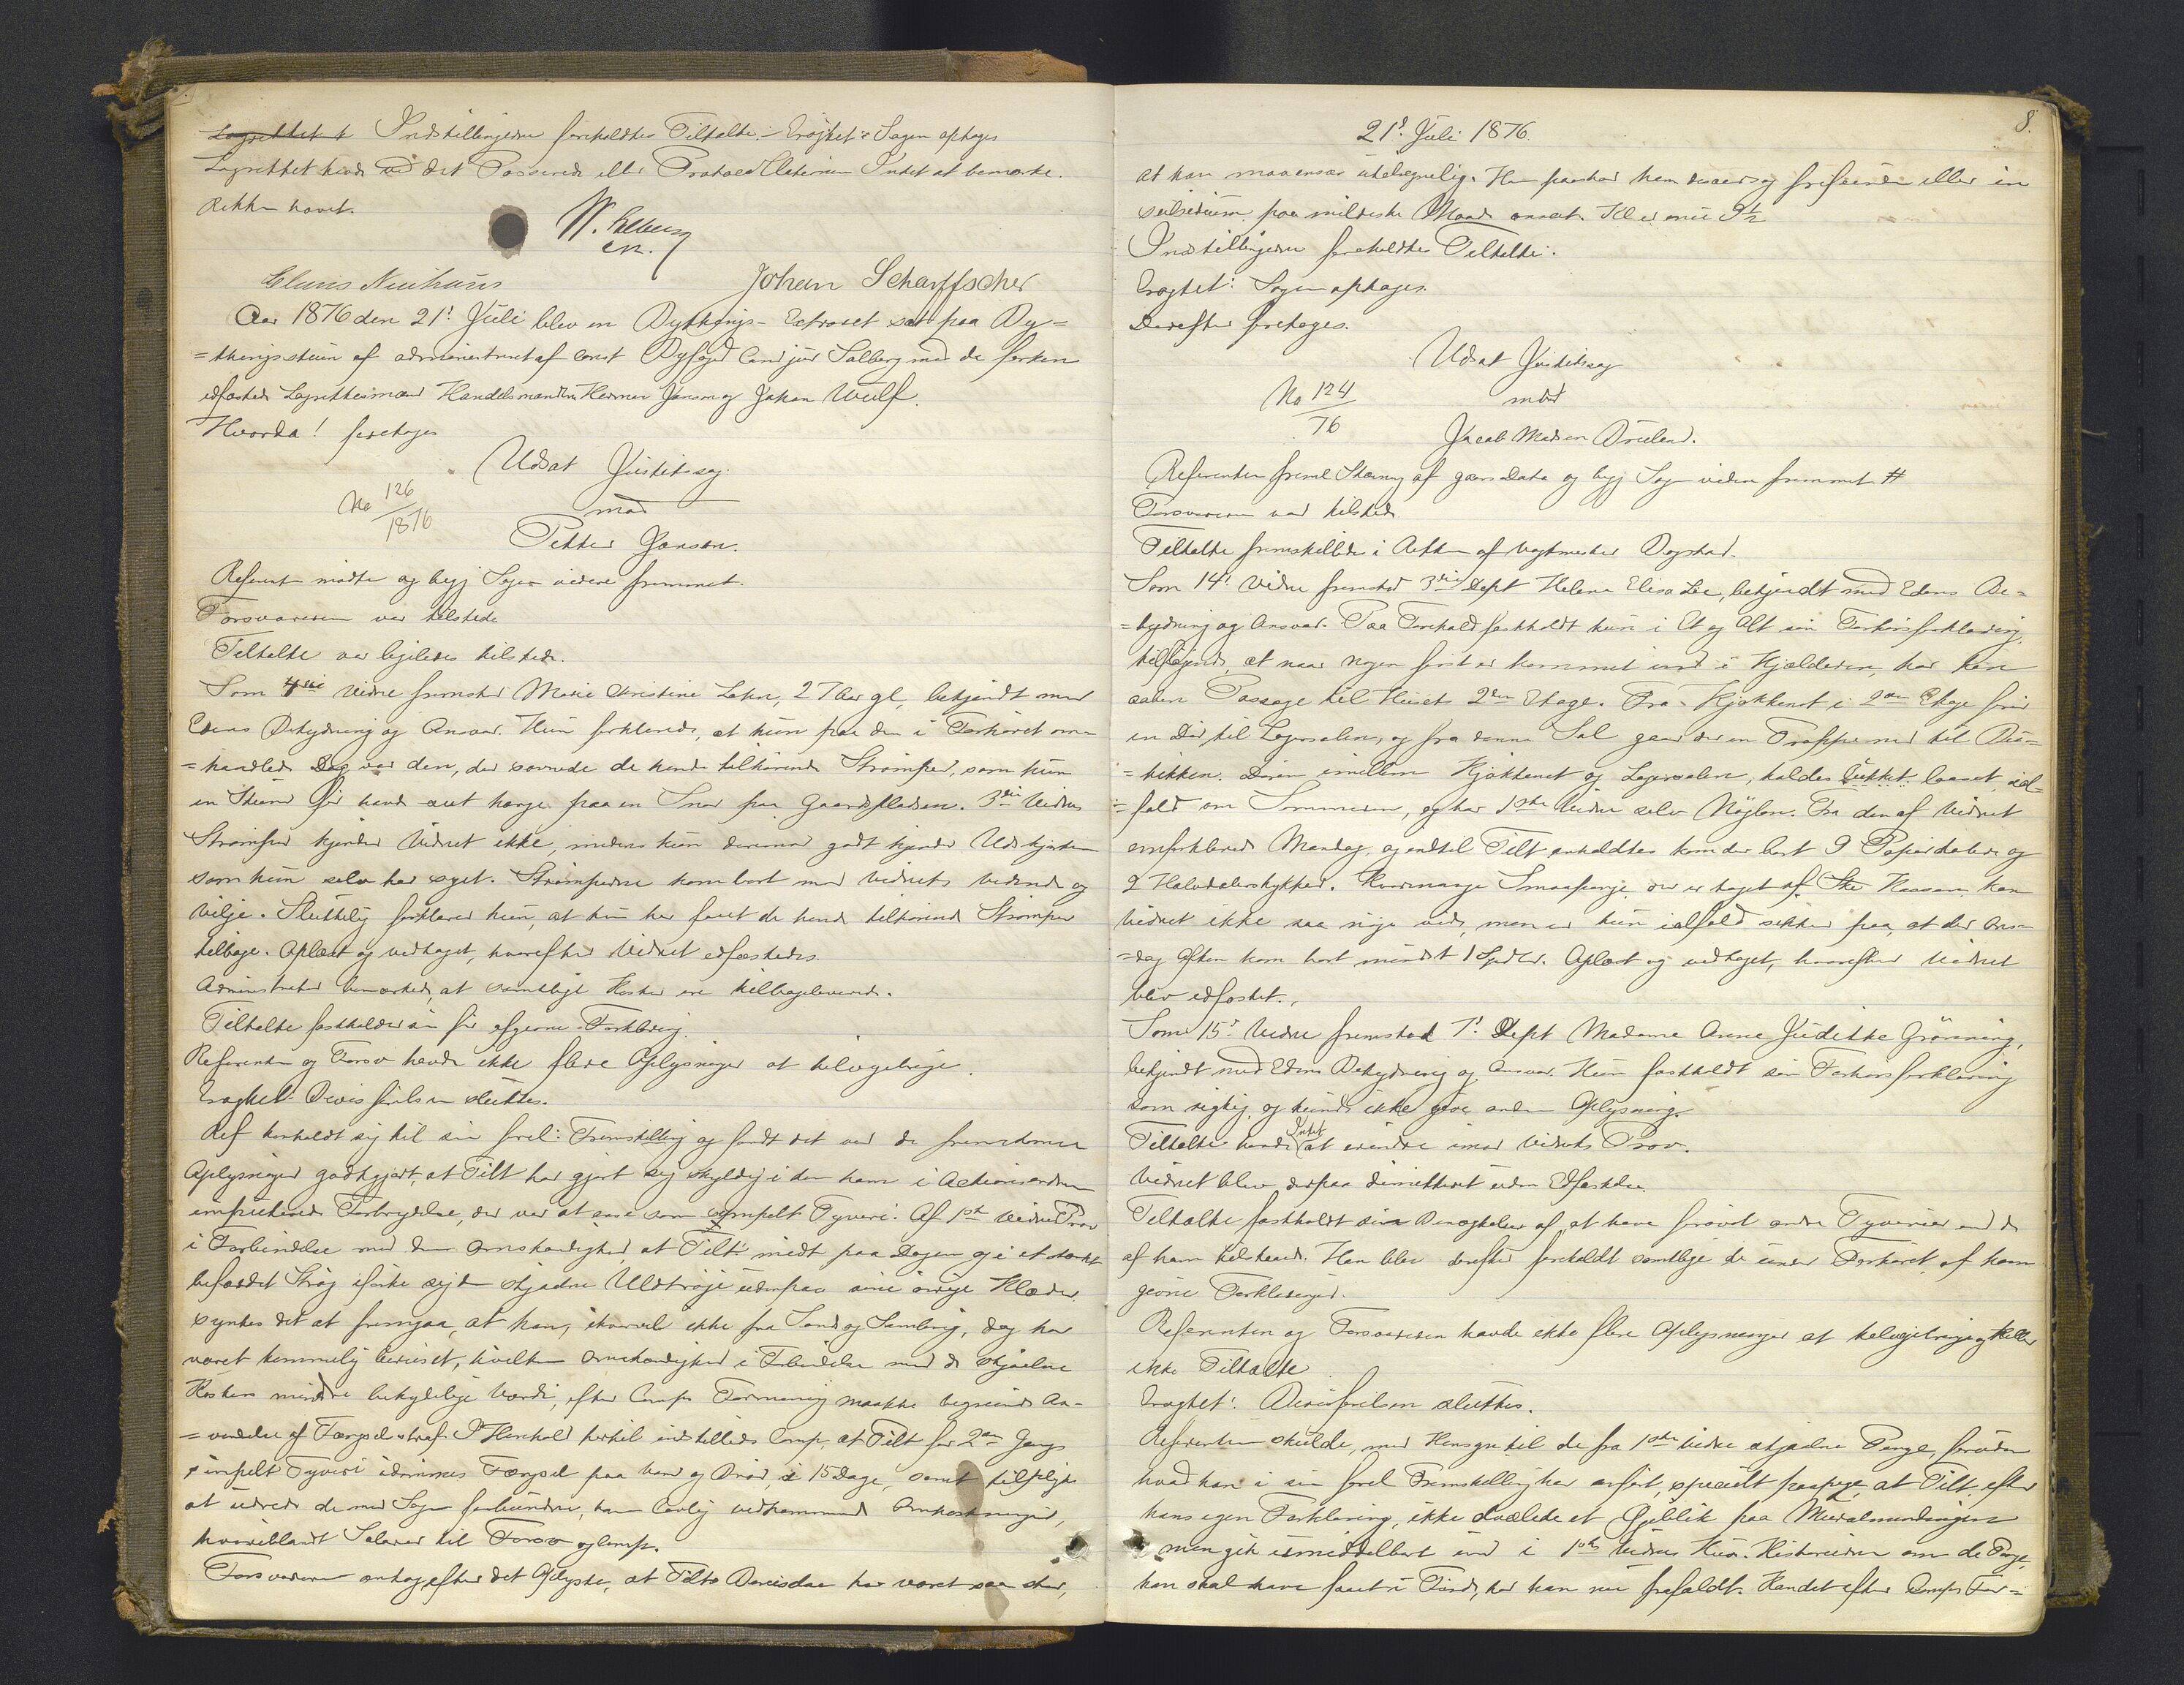 Indstillingerne foreholdtes Tiltalte. Eragtet: Sagen optages
Lagrettet havde ved det Passerede eller Protocollationen Intet at bemærke.
Retten hævet.
Claus Neuhaus
Johan Scharffscher
Aar 1876 den 21d Juli blev en Bythings-Extraret sat paa By=
=thingsstuen af administreret af const Byfoged Cand jur Salberg med de forhen
edfæstede Lagrettesmænd Handelsmændene Herman Janson og Johan Wulf.
Hvorda! foretoges
Udsat Justitssag
No 126/1876
mod
Petter Jonsen.
Referenten mødte og begj Sagen videre fremmet.
Forsvareren var tilstede
Tiltalte var ligeledes tilstede.
Som 4de Vidne fremstod Marie Christine Lohn, 27 Aar gl, bekjendt med
Edens Betydning og Ansvar. Hun forklarede, at hun paa den i Forhøret om=
=handlede Dag var den, der savnede de hende tilhørende Strømper, som hun
en Stund før havde seet hænge paa en Snor paa Gaardspladsen. 3die Vidnes
Strømper kjender Vidnet ikke, medens hun derimod godt kjender Uldskjorten
som hun selv har syet. Strømperne kom bort mod Vidnets Vidende og
Vilje. Sluttelig forklarer hun, at hun har faaet de hende tilhørende Strømper
tilbage. Oplæst og vedtaget, hvorefter Vidnet edfæstedes.
Administrator bemærkede, at samtlige Koster ere tilbageleverede.
Tiltalte fastholder sin før afgivne Forklaring.
Referenten og Forsv havde ikke flere Oplysninger at tilvejebringe.
Eragtet: Bevisførelsen sluttes.
Ref henholdt sig til sin forel: Fremstilling og fandt det ved de fremkomne
Oplysninger godtgjort, at Tilt har gjort sig skyldig i den ham i Actionsordren
imputerede Forbrydelse, der var at anse som simpelt Tyveri. Af 1ste Vidnes Prov
i Forbindelse med den Omstændighed at Tilt: midt paa Dagen og i et stærkt
befærdet Strøg iførte sig den stjaalne Uldtrøje udenpaa sine øvrige Klæder
syntes det at fremgaa, at han, ihvorvel ikke fra Sands og Samling, dog har
været temmelig beruset, hvilken Omstændighed i Forbindelse med de stjaalne
Kosters mindre betydelige Værdi, efter Comp Formening maatte begrunde An=
=vendelse af Fængselsstraf. I Henhold hertil indstillede Comp, at Tilt for 2den Gangs
simpelt Tyveri idømmes Fængsel paa Vand og Brød i 15 Dage, samt tilpligtes
at udrede de med Sagen forbundne, ham lovlig vedkommende Omkostninger,
hvoriblandt Salarer til Forsv og Comp.
Forsvareren antog efter det Oplyste, at Tilts Beruselse har været saa stor,
8.
21d Juli 1876.
at han maa ansees utilregnelig. Han paastod ham desaarsag frifunden eller in
subsidium paa mildeste Maade anseet. Kl er nu 9½
Indstillingerne foreholdtes Tiltalte.
Eragtet: Sagen optages.
Derefter foretoges.
Udsat Justitssag
No 124/76
mod
Jacob Madsen Bruland.
Referenten freml Stævning af gaars Dato og begj Sagen videre fremmet #
Forsvareren var tilstede
Tiltalte fremstilledes i Retten af Vagtmester Dogstad.
Som 14d Vidne fremstod 3die Dept Helene Elisa Lie, bekjendt med Edens Be=
=tydning og Ansvar. Paa Forehold fastholdt hun i Et og Alt sin Forhørsforklaring,
tilføjende, at naar nogen først er kommet ind i Kjælderen, har han
aaben Passage til Husets 2den Etage. Fra Kjøkkenet i 2den Etage fører
en Dør til Lagersalen, og fra denne Sal gaar der en Trappe ned til Bu=
=tikken. Døren imellem Kjøkkenet og Lagersalen, holdes lukket laaset, ial=
=fald om Sommeren, og har 1ste Vidne selv Nøglen. Fra den af Vidnet
omforklarede Mandag, og indtil Tilt anholdtes kom der bort 9 Papirdalere og
2 Halvdalerstykker. Hvormange Smaapenge der er taget af Kassen kan
Vidnet ikke saa nøje vide, men er hun ialfald sikker paa, at der Ons=
=dag Aften kom bort mindst 1 Spdlr. Oplæst og vedtaget, hvorefter Vidnet
blev edfæstet.
Som 15d Vidne fremstod 7d Dept Madame Anne Judithe Grønning,
bekjendt med Edens Betydning og Ansvar. Hun fastholdt sin Forhørsforklaring
som rigtig, og kunde ikke give anden Oplysning.
Tiltalte havde Intet at erindre imod Vidnets Prov.
Vidnet blev derpaa dimitteret uden Edfæstelse.
Tiltalte fastholdt sin Benægtelse af at have forøvet andre Tyverier end de
af ham tilstaaede. Han blev derefter foreholdt samtlige de under Forhøret af ham
givne Forklaringer.
Referenten og Forsvareren havde ikke flere Oplysninger at tilvejebringe og Heller
ikke Tiltalte
Eragtet: Bevisførelsen sluttes.
Referenten skulde, med Hensyn til de fra 1ste Vidne stjaalne Penge, foruden
hvad han i sin forel Fremstilling har anført, specielt paapege, at Tilt, efter
hans egen Forklaring, ikke dvælede et Øjeblik paa Muralmendingen
men gik umiddelbart ind i 1ste Vidnes Hus. Historien om de Penge,
han skal have faaet i Fund, har han nu frafaldt. Han det efter Comps For=